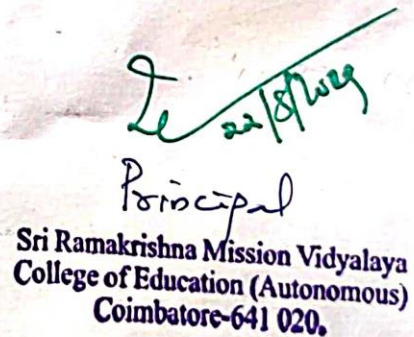 22/8/2029
Principal
Sri Ramakrishna Mission Vidyalaya
College of Education (Autonomous)
Coimbatore-641 020.